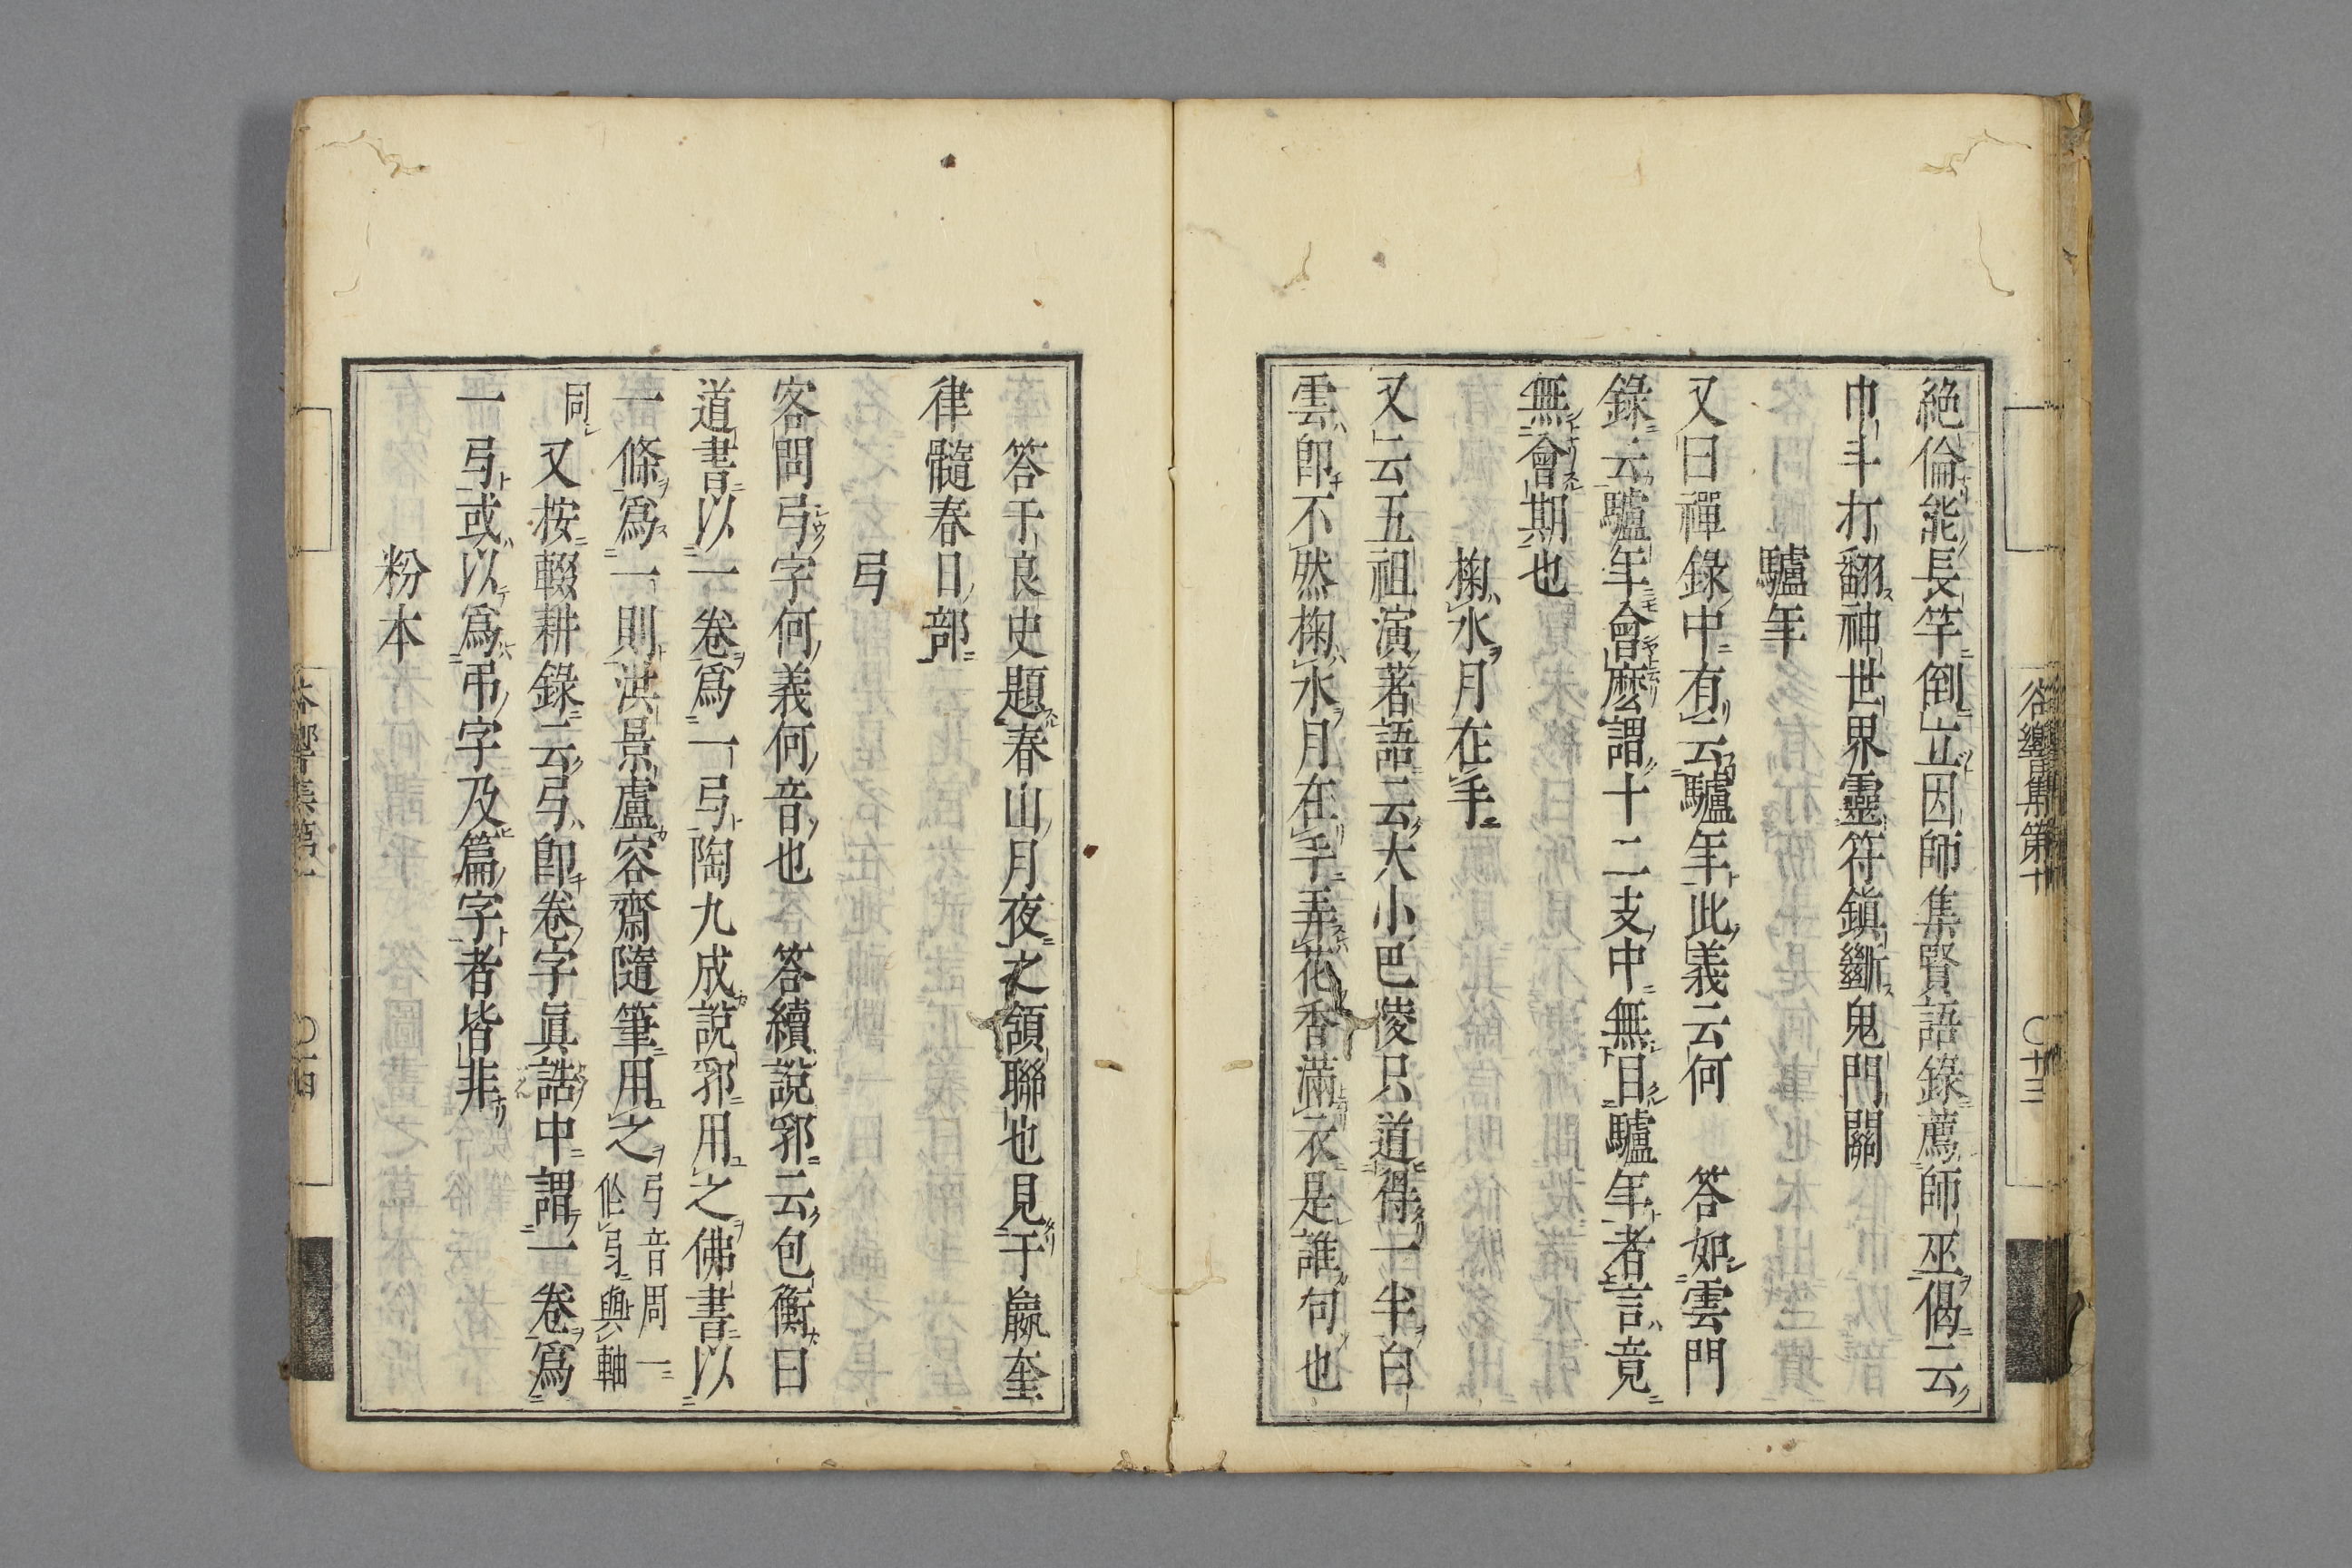 絶倫能長竿倒立因師集賢語錄薦師巫偈云
巾斗打翻神世界靈符鎭斷鬼門關
驢年
又曰禪錄中有云驢年此義云何　答如雲門
錄云驢年會麽謂十二支中無目驢年者言竟
無會期也
掬水月在手
又云五祖演著語云大小巴陵只道得一半白
雲即不然掬水月在手弄花香滿衣是誰句也
谷響集第十　〇十三
答于良史題春山月夜之頷聯也見于瀛奎
律髓春日部
弓
客問弓字何義何音也　答續說郛云包衡曰
道書以一卷爲一弓陶九成說郛用之佛書以
一條爲一則洪景盧容齋隨筆用之
弓音周一
作弓與軸
同
又按輟耕錄云弓即卷字眞誥中謂一卷爲
一弓或以爲弔字及篇字者皆非
粉本